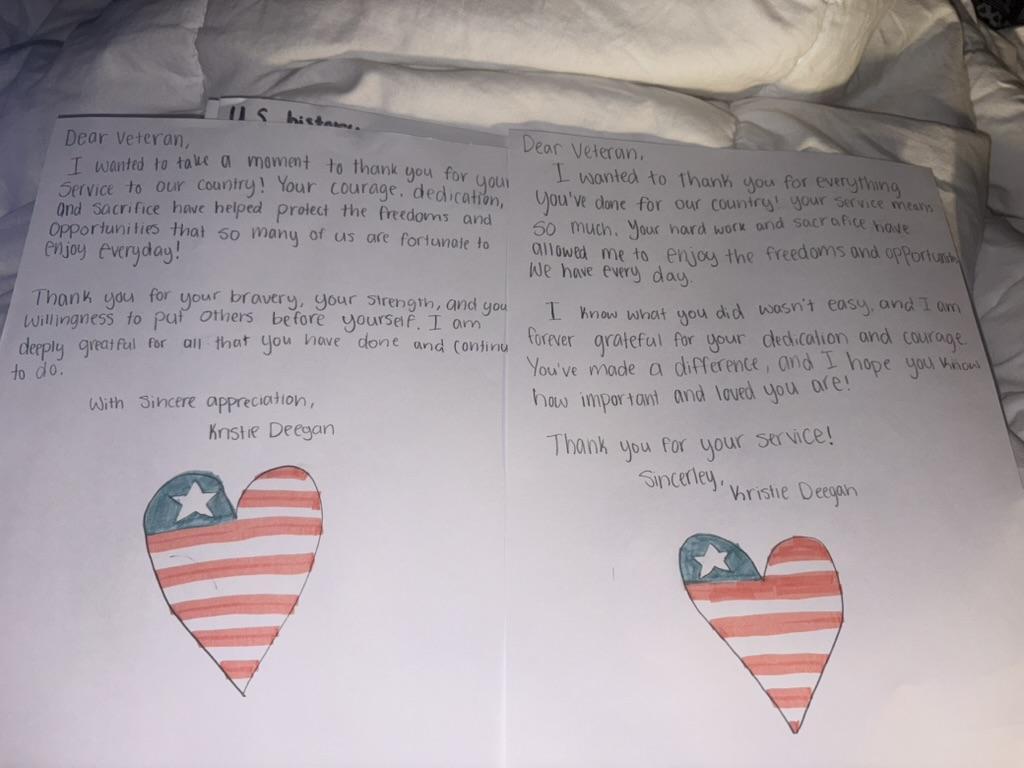 U.S. history.
Dear Veteran,
I wanted to take a moment to thank you for your
service to our country! Your courage, dedication,
and sacrifice have helped protect the freedoms and
opportunities that so many of us are fortunate to
enjoy everyday!
Thank you for your bravery, your strength, and you
willingness to put others before yourself. I am
deeply greatful for all that you have done and continu
to do.
With sincere appreciation,
Kristie Deegan
Dear Veteran,
I wanted to thank you for everything
you've done for our country! your service means
so much. Your hard work and sacrafice have
allowed me to enjoy the freedoms and opportunities
We have every day.
I know what you did wasn't easy, and I am
forever grateful for your dedication and courage.
You've made a difference, and I hope you know
how important and loved you are!
Thank you for your service!
Sincerley,
Kristie Deegan